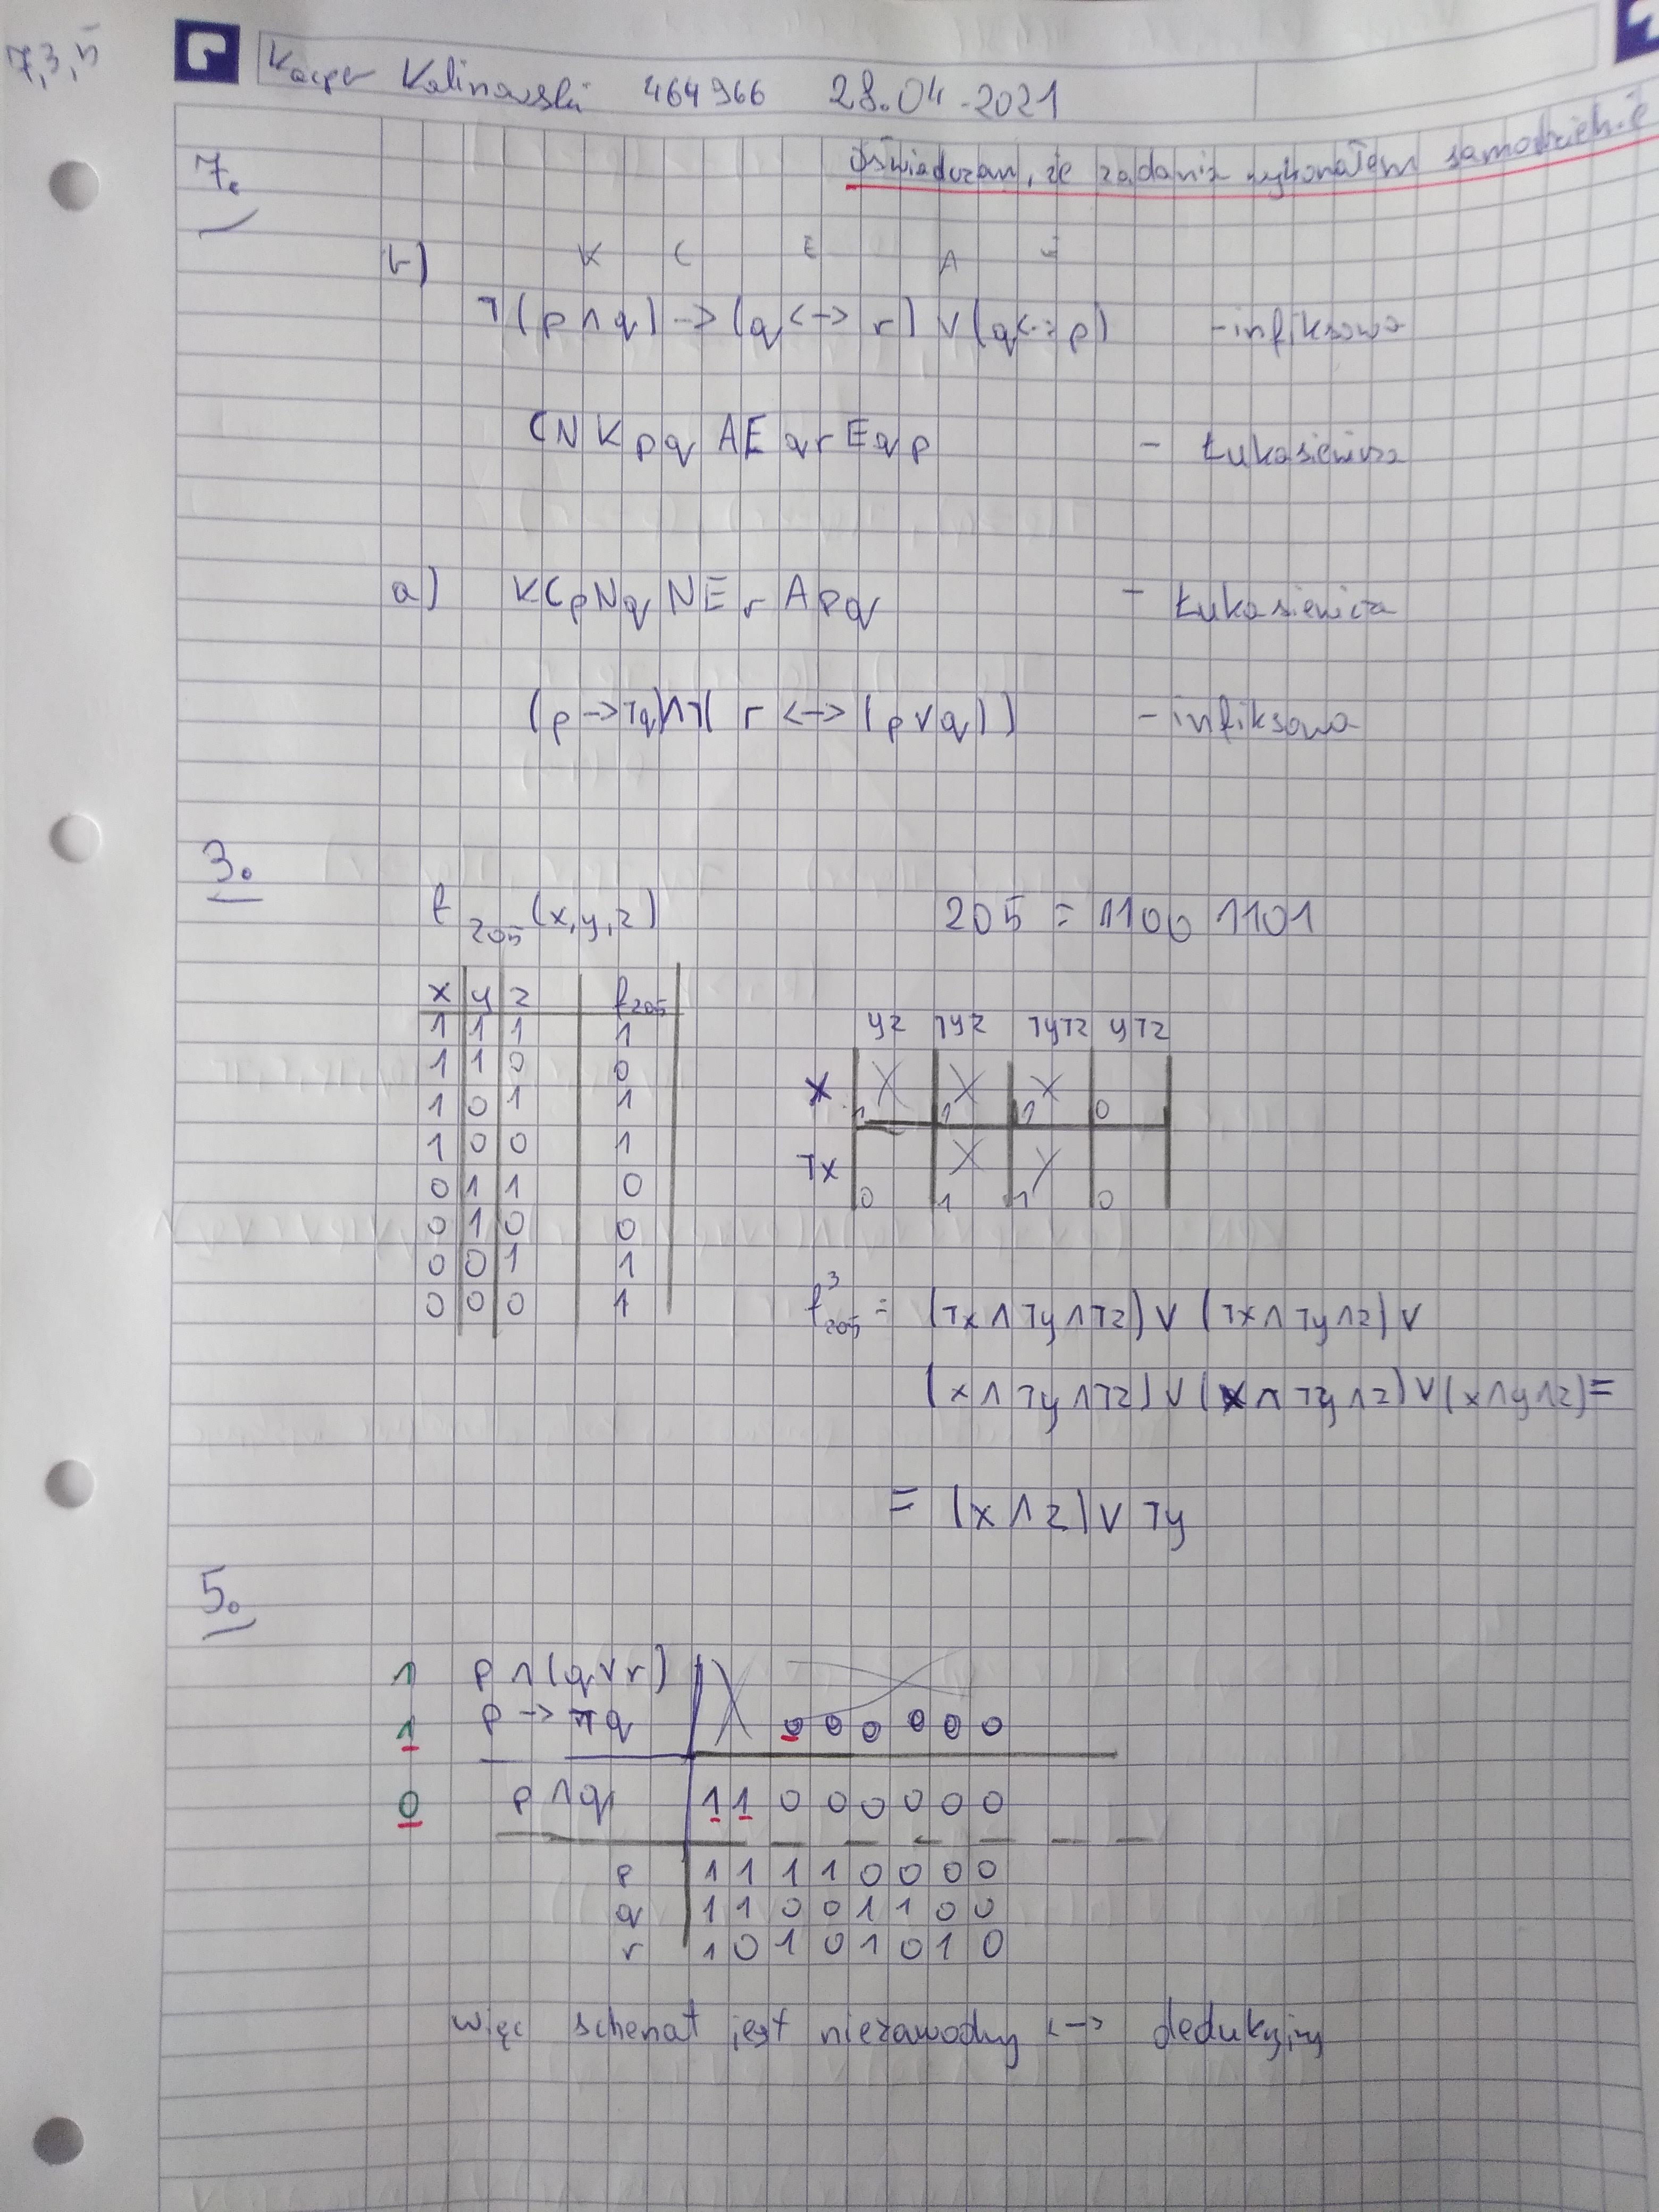 7,3,5
Kacper Kalinowski 464966 28.04.2021
Oświadczam, że zadania wykonałem samodzielnie
7.
b) K C E A E
¬(p∧q) -> (q <-> r) ∨ (q <-> p) - infiksowa
CNKpqAEqrEqp - Łukasiewicza
a) KCpNqNErApq - Łukasiewicza
(p -> ¬q)∧¬( r <-> (p∨q)) - infiksowa
3.
f₂₀₅(x,y,z) 205 = 1100 1101
x y z f₂₀₅
yz ¬yz ¬y¬z y¬z
1 1 1 1
1 1 0 0
x X 1 X 1 X 1 0
1 0 1 1
1 0 0 1
¬x 0 X 1 X 1 0
0 1 1 0
0 1 0 0
0 0 1 1
0 0 0 1
f³₂₀₅ = (¬x∧¬y∧¬z) ∨ (¬x∧¬y∧z) ∨
(x∧¬y∧¬z) ∨ (x∧¬y∧z) ∨ (x∧y∧z) =
= (x∧z) ∨ ¬y
5.
1 p∧(q∨r)
1 p -> ¬q 0 0 0 0 0 0
0 p∧q 1 1 0 0 0 0 0 0
p 1 1 1 1 0 0 0 0
q 1 1 0 0 1 1 0 0
r 1 0 1 0 1 0 1 0
więc schemat jest niezawodny <-> dedukcyjny